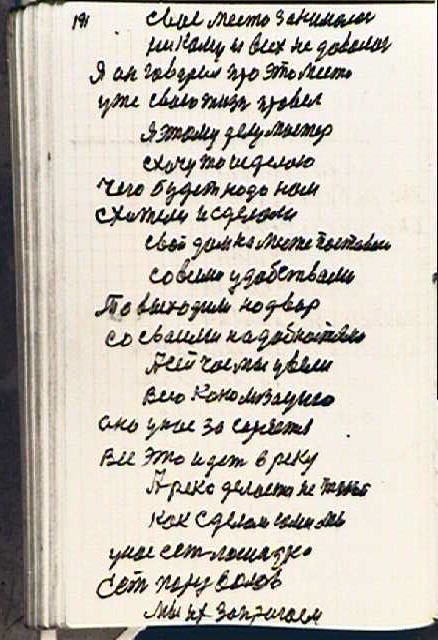 191 свое место занимала
никому и всех не довала
Я он говорил про это место
уже свою жизн провел
Я этому делу мастер
схочу то и сделаю
Чего будет надо нам
схотели и сделали
свой дом на месте поставил
со всеми удобствами
То выходили на двор
со сваими надобностями
А сейчас мы увели
всю
оно у нас за
Все это идет в реку
А река делаеть не
Как сделал сами
у нас сет лошадка
Сет пару волов
Мы их запрягаем